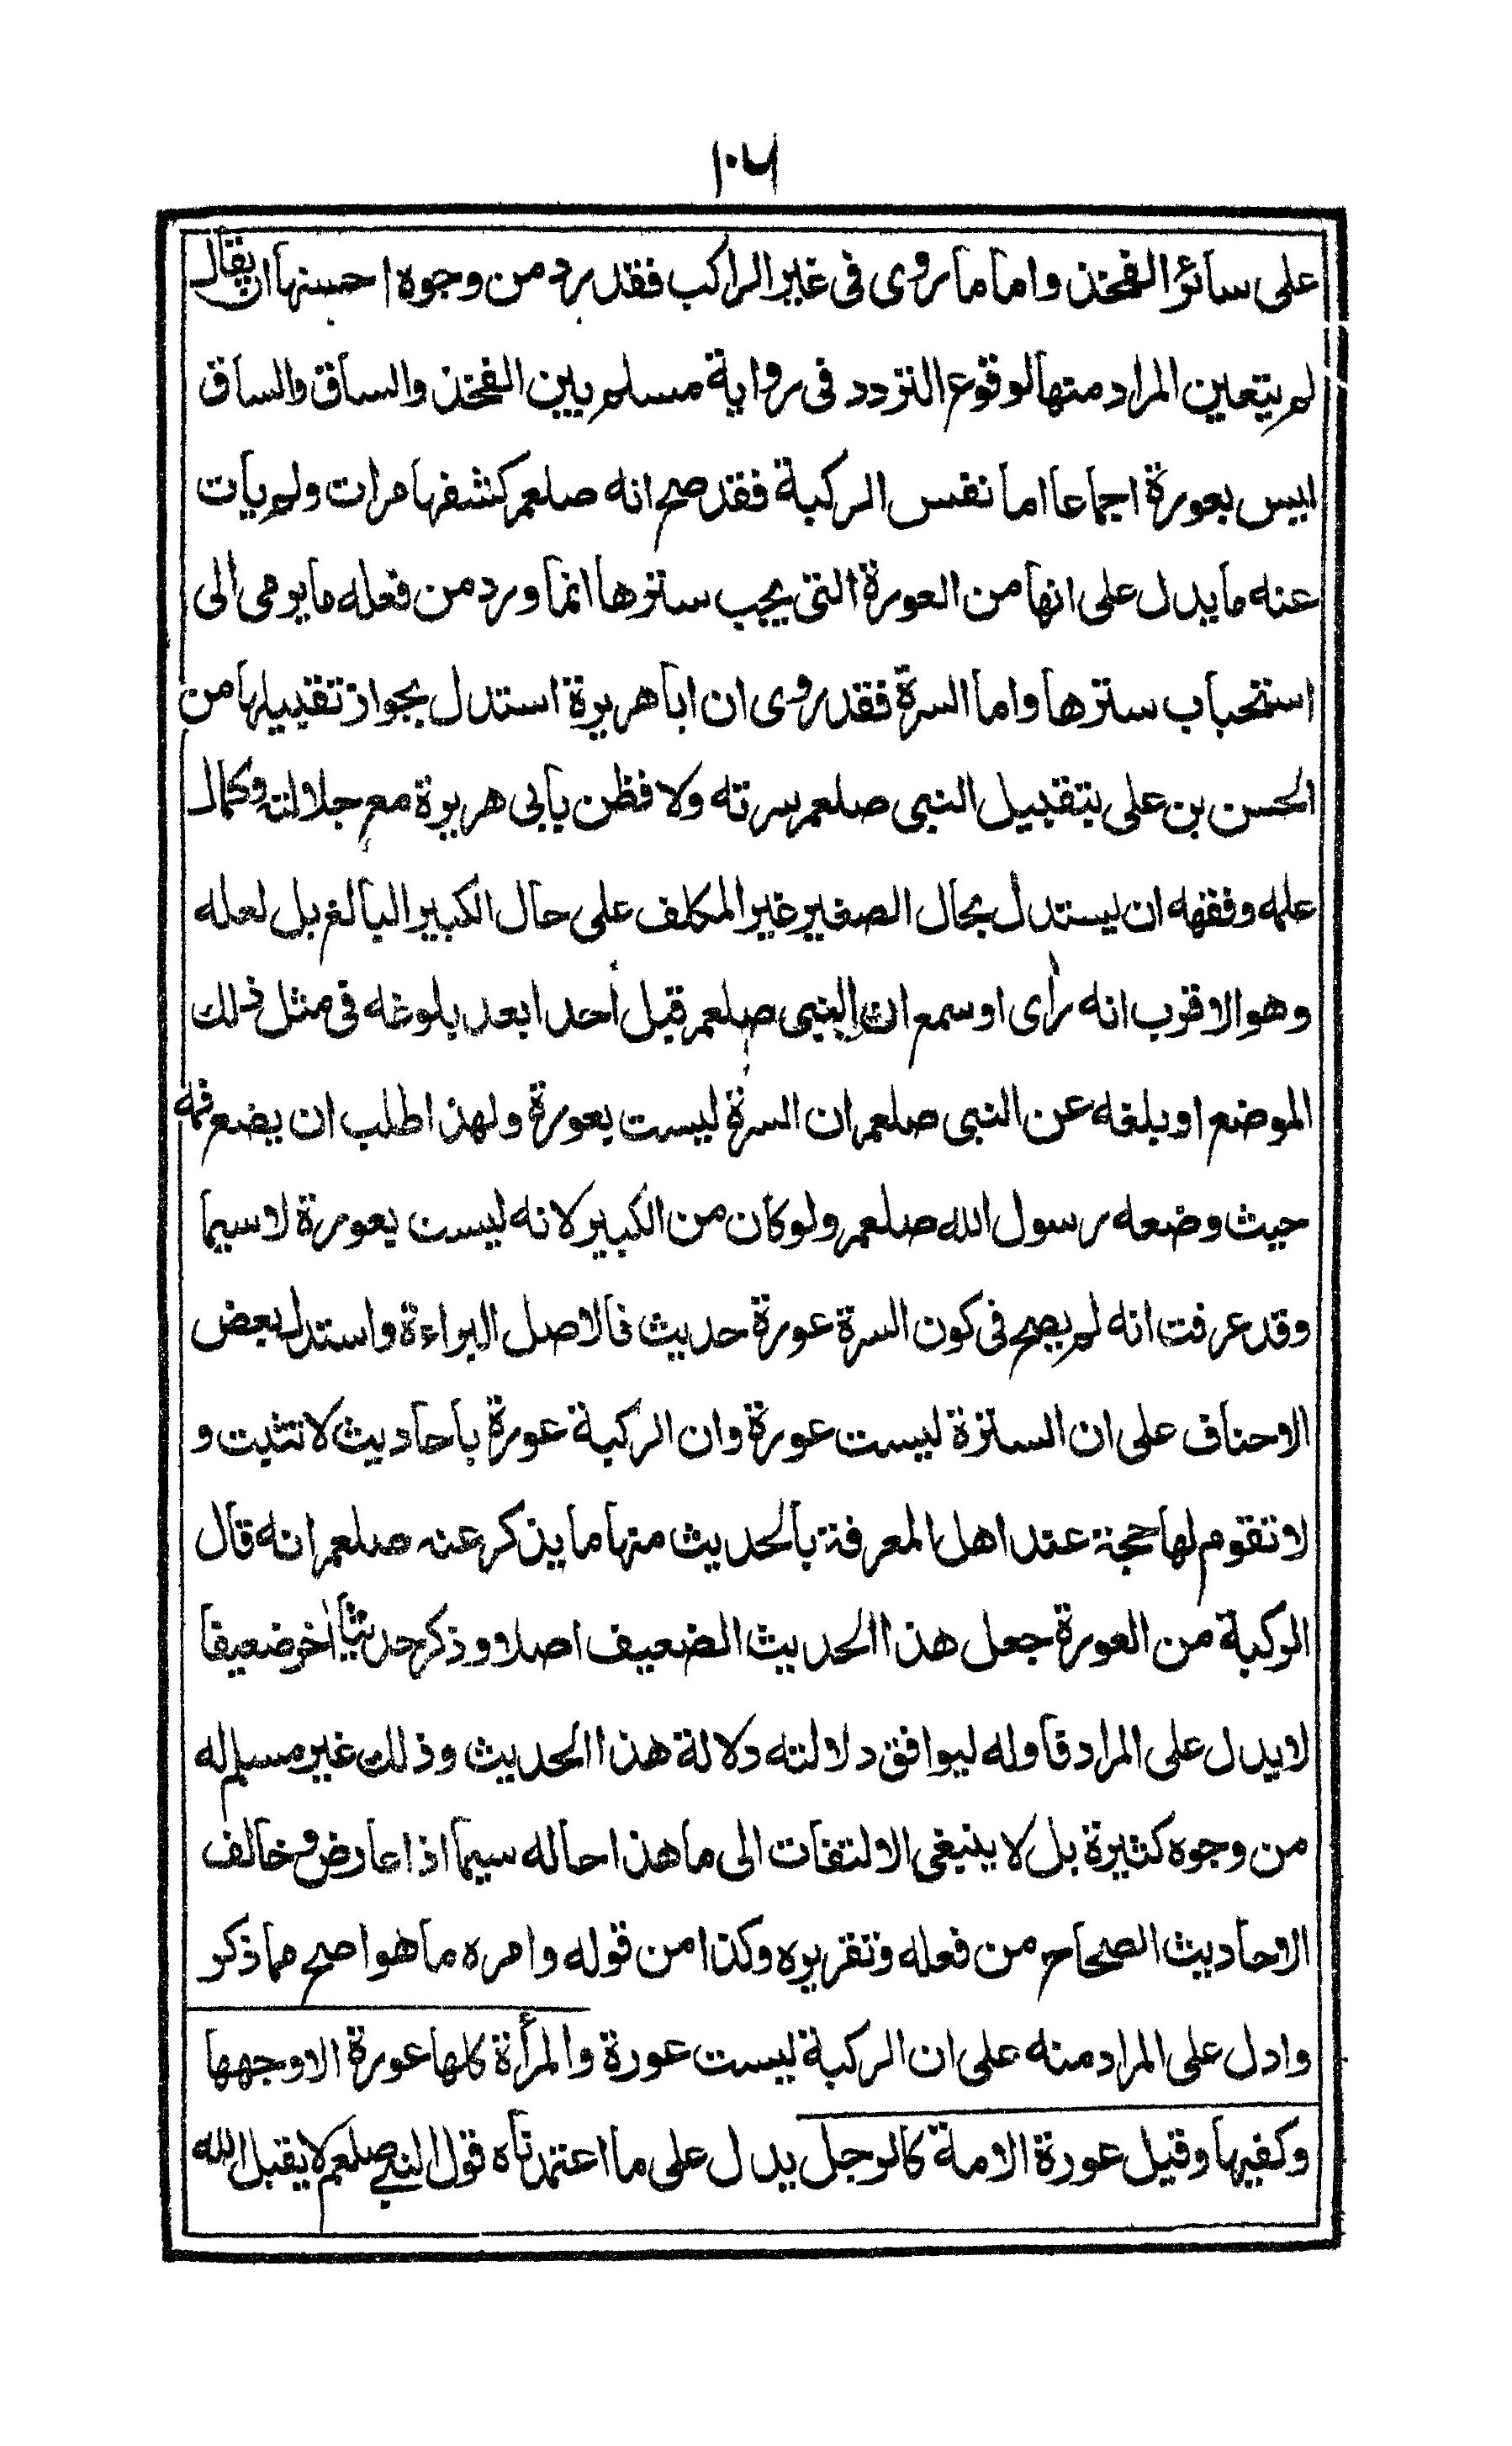 ١٠٦
على سائر الفخذ واما ما روى فى غير الراكب فقد يرد من وجوه احسنها ان يقال
لم يتعين المراد منها لوقوع التردد فى رواية مسلم بين الفخذ والساق والساق
ليس بعورة اجماعا اما نفس الركبة فقد صح انه صلعم كشفها مرات ولم يأت
عنه ما يدل على انها من العورة التى يجب سترها انما ورد من فعله ما يومى الى
استحباب سترها واما السرة فقد روى ان ابا هريرة استدل بجواز تقبيلها من
الحسن بن على بتقبيل النبى صلعم سرته ولا فظن بابى هريرة مع جلالته وكمال
علمه وفقهه ان يستدل بحال الصغير غير المكلف على حال الكبير البالغ بل لعله
وهو الاقرب انه رأى او سمع ان النبى صلعم قبل أحدا بعد بلوغه فى مثل ذلك
الموضع او بلغه عن النبى صلعم ان السرة ليست بعورة ولهذا طلب ان يضع فمه
حيث وضعه رسول الله صلعم ولو كان من الكبير لانه ليست بعورة لا سيما
وقد عرفت انه لم يصح فى كون السرة عورة حديث فالاصل البراءة واستدل بعض
الاحناف على ان السترة ليست عورة وان الركبة عورة باحاديث لا تثبت و
لا تقوم لها حجة عند اهل المعرفة بالحديث منها ما يذكر عنه صلعم انه قال
الركبة من العورة جعل هذا الحديث الضعيف اصلا وذكر حديثا أخر ضعيفا
لا يدل على المراد فاوله ليوافق دلالته دلالة هذا الحديث وذلك غير مسلم له
من وجوه كثيرة بل لا ينبغى الالتفات الى ما هذا حاله سيما اذا عارض وخالف
الاحاديث الصحاح من فعله وتقريره وكذا من قوله وامره ما هو اصح مما ذكر
وادل على المراد منه على ان الركبة ليست عورة والمرأة كلها عورة الا وجهها
وكفيها وقيل عورة الامة كالرجل يدل على ما اعتمدناه قول النبى صلعم لا يقبل الله